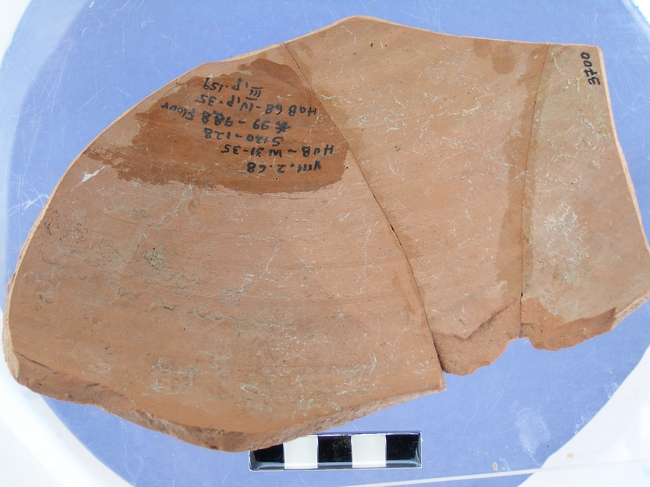 VIII.2.68
HOB ~ W 31-35
S120-128
* 99 - 98.8 Floor
HOB 68-IV, P.35
III, P.159
3700